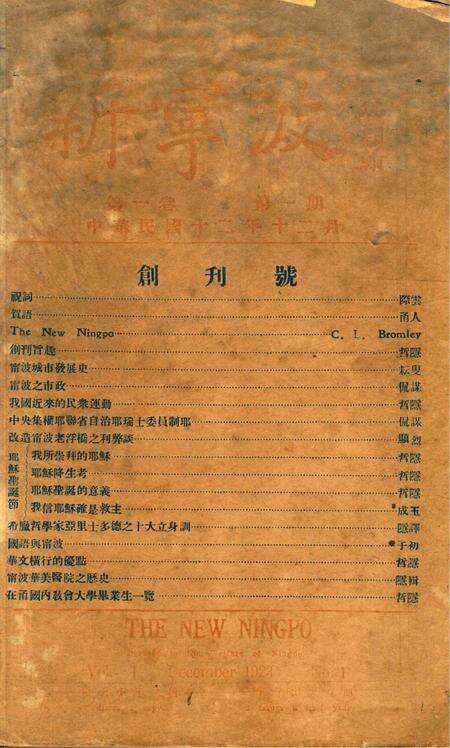 新寗波
第一卷 第一期
中華民國十二年十二月
創刊號
祝詞 際雲
賀語 甬人
The New Ningpo C. L. Bromley
創刊旨趣 哲隧
甯波城市發展史 耘叟
甯波之市政 侃謀
我國近來的民衆運動 哲隧
中央集權耶聯省自治耶瑞士委員制耶 侃謀
改造甯波老浮橋之利弊談 顯烈
耶穌聖誕節
我所崇拜的耶穌 哲隧
耶穌降生考 哲隧
耶穌聖誕的意義 哲隧
我信耶穌確是救主 成玉
希臘哲學家亞里士多德之十大立身訓 隧譯
國語與甯波 于初
華文橫行的優點 哲隧
甯波華美醫院之歷史 隧輯
在甬國內敎會大學畢業生一覽 哲隧
THE NEW NINGPO
Vol. 1 December 1923 No. 1